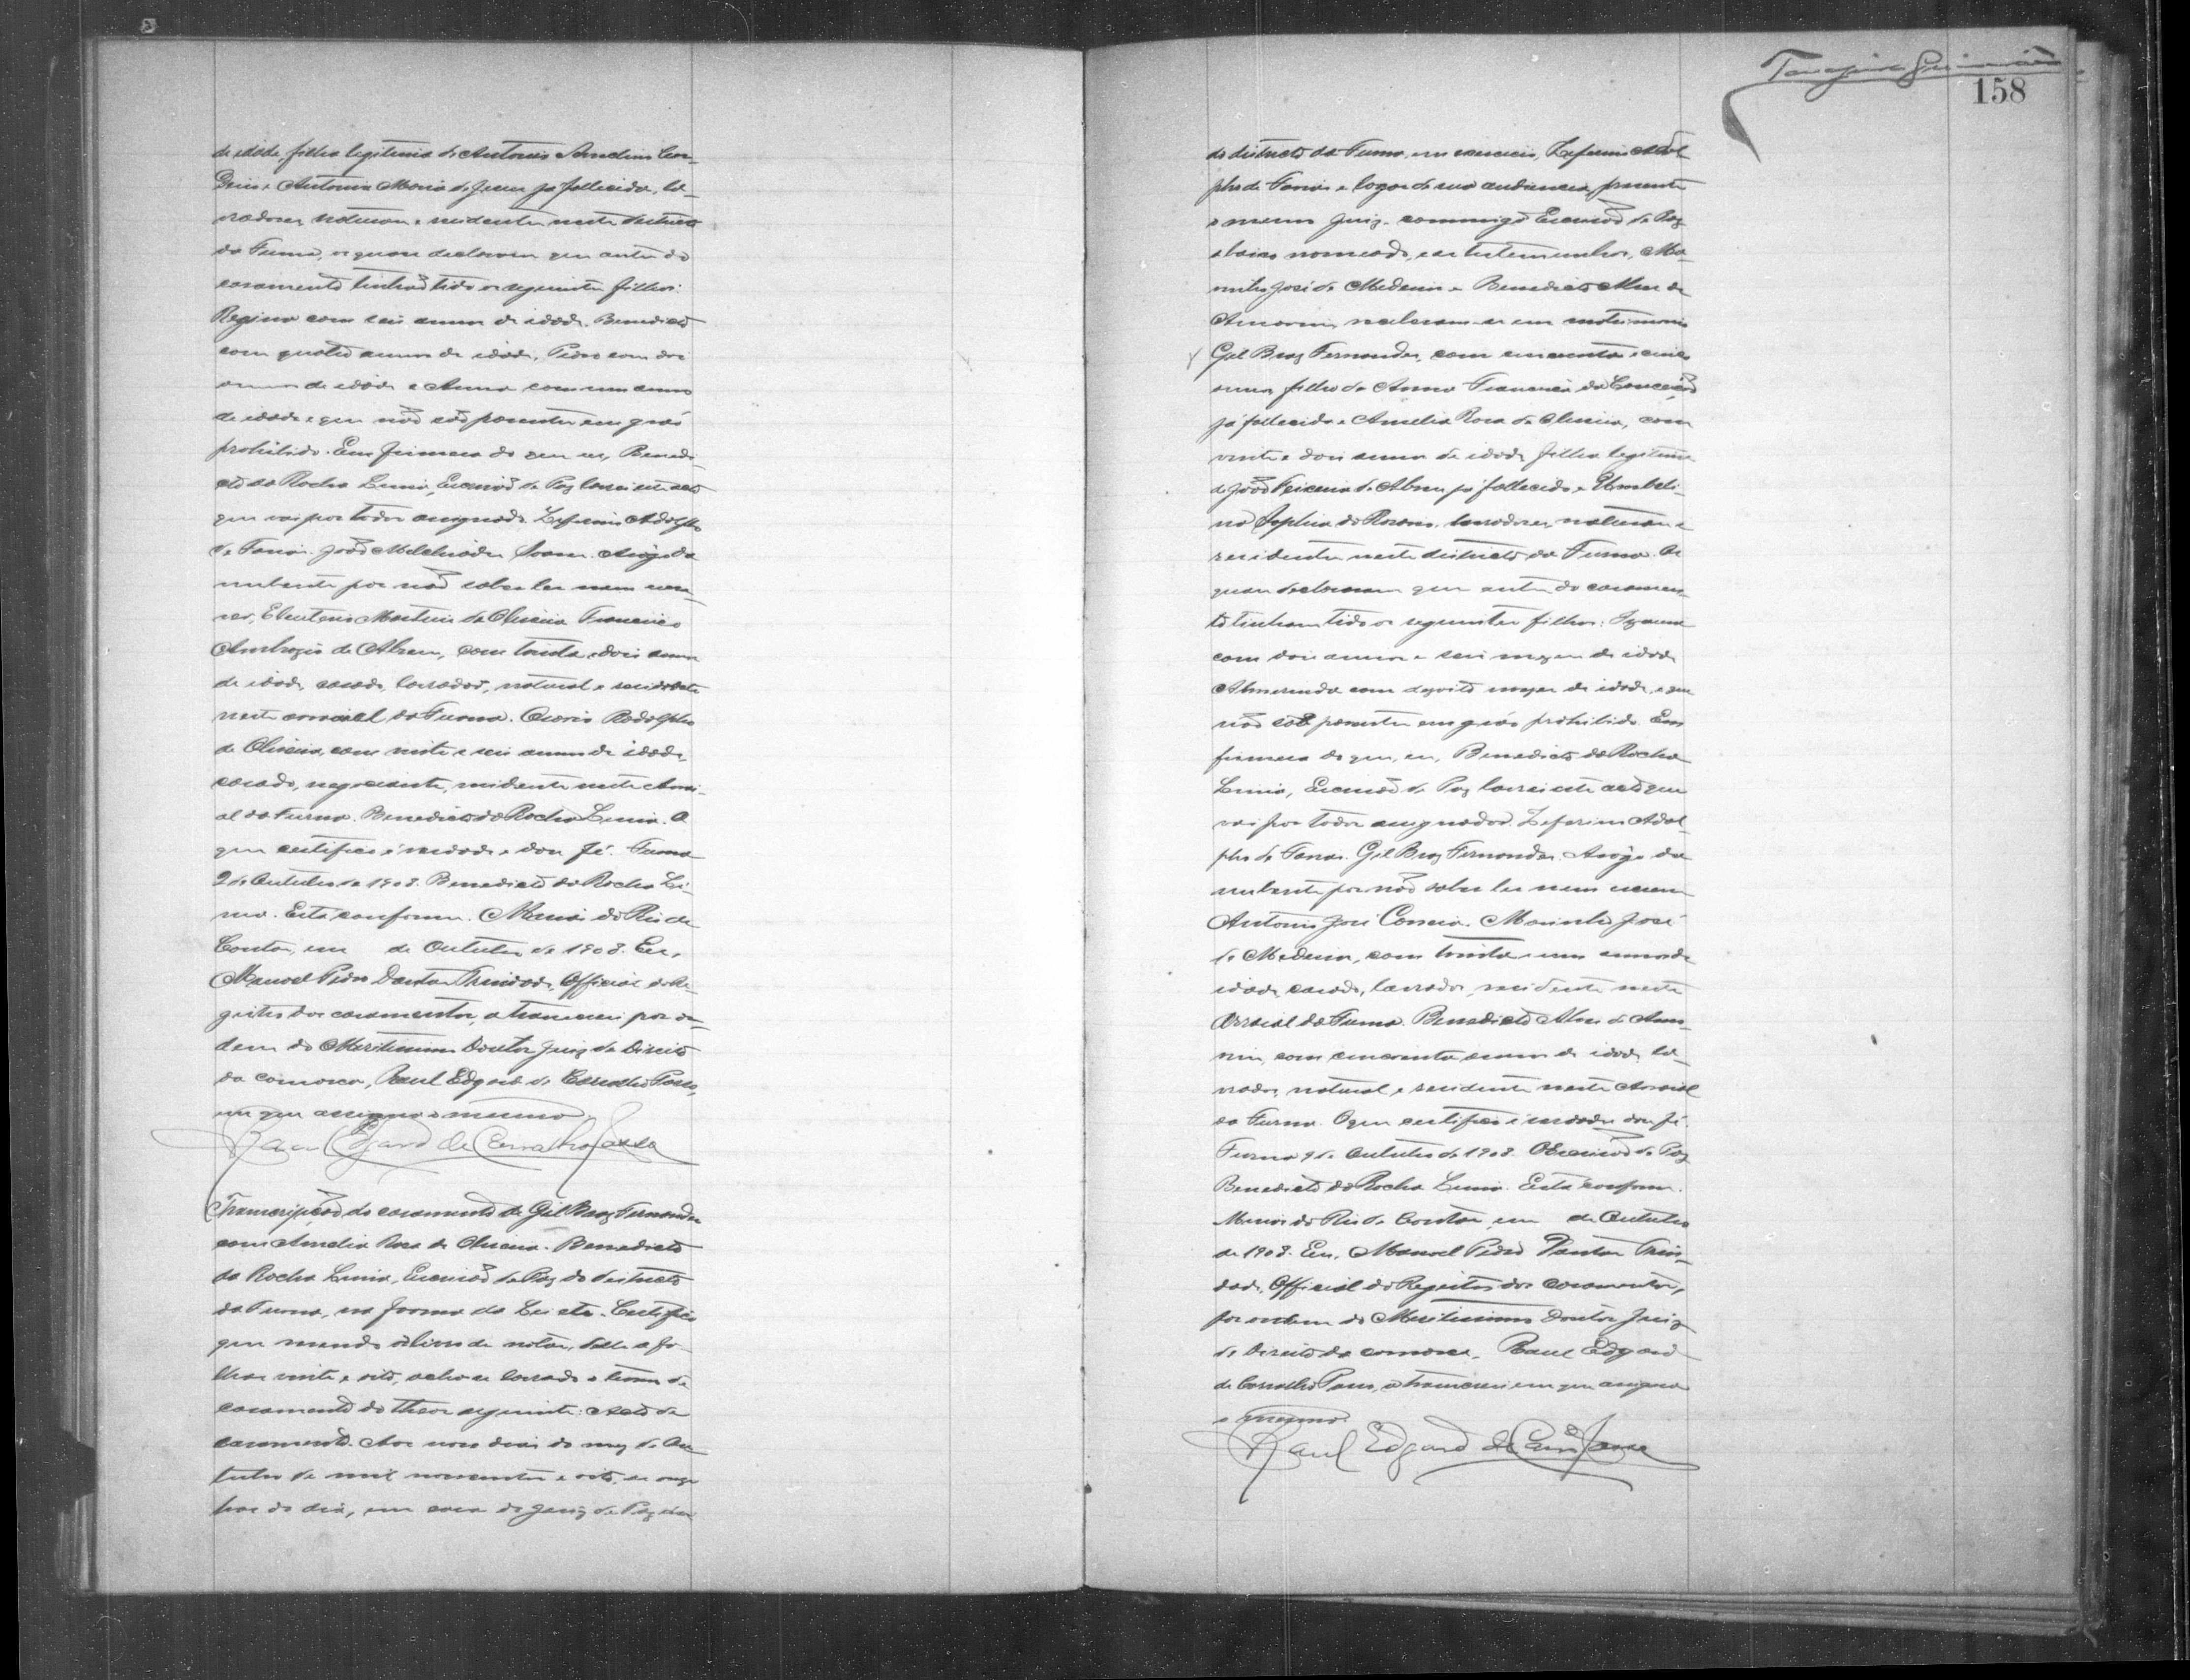 de idade, filha legitima de Antonio Anselmo Cor-
deiro e Antonia Maria de Jesus já fallecida, la-
vradores, naturaes e residentes neste districto
da Furna, os quaes declararam que antes do
casamento tinhão tido os seguintes filhos:
Regina com seis annos de idade, Benedicto
com quatro annos de idade, Pedro com dois
annos de idade e Anna com um anno
de idade e que não são parentes em gráo
prohibido. Em firmesa do que eu, Benedi-
cto da Rocha Lima, Escrivão de Paz lavrei este acto
que vai por todos assignado. Zeferino Adolpho
de Farias. João Melchiades Soares. Arogo da
nubente por não saber ler nem escre-
ver, Eleuterio Martins de Oliveira Francisco
Ambrozio de Abreu, com trinta e dois annos
de idade, casado, lavrador, natural e residente
neste arraial da Furna. Rodolpho
de Oliveira, com vinte e seis annos de idade,
casado, negociante, residente neste Arrai-
al da Furna. Benedicto da Rocha Lima. O
que certifico é verdade e dou fé. Furna
2 de Outubro de 1908. Benedicto da Rocha Li-
ma. Está conforme. Minas do Rio de
Contas, em de Outubro de 1908. Eu,
Manoel Pedro Dantas Trindade, Official do Re-
gistro dos casamentos, o transcrevi por or-
dem do Meritissimo Doutor Juiz de Direito
da comarca, Raul Edgard de Carvalho
em que assigna o mesmo.
Raul Edgard de Carvalho
Transcripção do casamento de Gil Braz Fernandes
com Amelia Rosa de Oliveira. Benedicto
da Rocha Lima, Escrivão de Paz do districto
da Furna, na forma da Lei etc. Certifico
que revendo o livro de notas, delle a fo-
lhas vinte e oito, acha-se lavrado o termo de
casamento do theor seguinte: Acto de
casamento. Aos nove dias do mez de Ou-
tubro de mil novecentos e oito, as onze
horas do dia, em casa do Juiz de Paz
158
do districto da Furna, em exercicio, Zeferino Adol
pho de Farias e logar de sua audiencia, presente
o mesmo Juiz, commigo Escrivão de Paz
abaixo nomeado, e as testemunhas, Ma-
rinho José de Medeiros e Benedicto Alves de
Amorim, receberam-se em matrimonio
Gil Braz Fernandes, com cincoenta e cinco
annos, filho de Anna Francisca da Conceição
já fallecida e Amelia Rosa de Oliveira, com
vinte e dois annos de idade filha legitima
de João Teixeira de Abreu já fallecido e Umbeli-
na Sophia do Rosario, lavradores, naturaes e
residentes neste districto da Furna. Os
quaes declararam que antes do casamen-
to tinham tido os seguintes filhos:
com dois annos e seis mezes de idade
Almerinda com dezoito mezes de idade, e que
não são parentes em gráo prohibido. Em
firmesa do que, eu, Benedicto da Rocha
Lima, Escrivão de Paz lavrei este acto que
vai por todos assignados. Zeferino Adol-
pho de Farias. Gil Braz Fernandes. Arogo da
nubente por não saber ler nem escrever
Antonio José Correia. Marinho José
de Medeiros, com trinta e um annos de
idade, casado, lavrador, residente neste
Arraial da Furna. Benedicto Alves de Amo-
rim, com cincoenta annos de idade, la-
vrador, natural e residente neste Arraial
da Furna. O que certifico é verdade dou fé.
Furna 9 de Outubro de 1908. O Escrivão de Paz
Benedicto da Rocha Lima. Está conforme.
Minas do Rio de Contas, em de Outubro
de 1908. Eu, Manoel Pedro Dantas Trin-
dade, Official do Registro dos Casamentos,
por ordem do Meritissimo Doutor Juiz
de Direito da comarca, Raul Edgard
de Carvalho, o transcrevi em que assigna
o mesmo.
Raul Edgard de